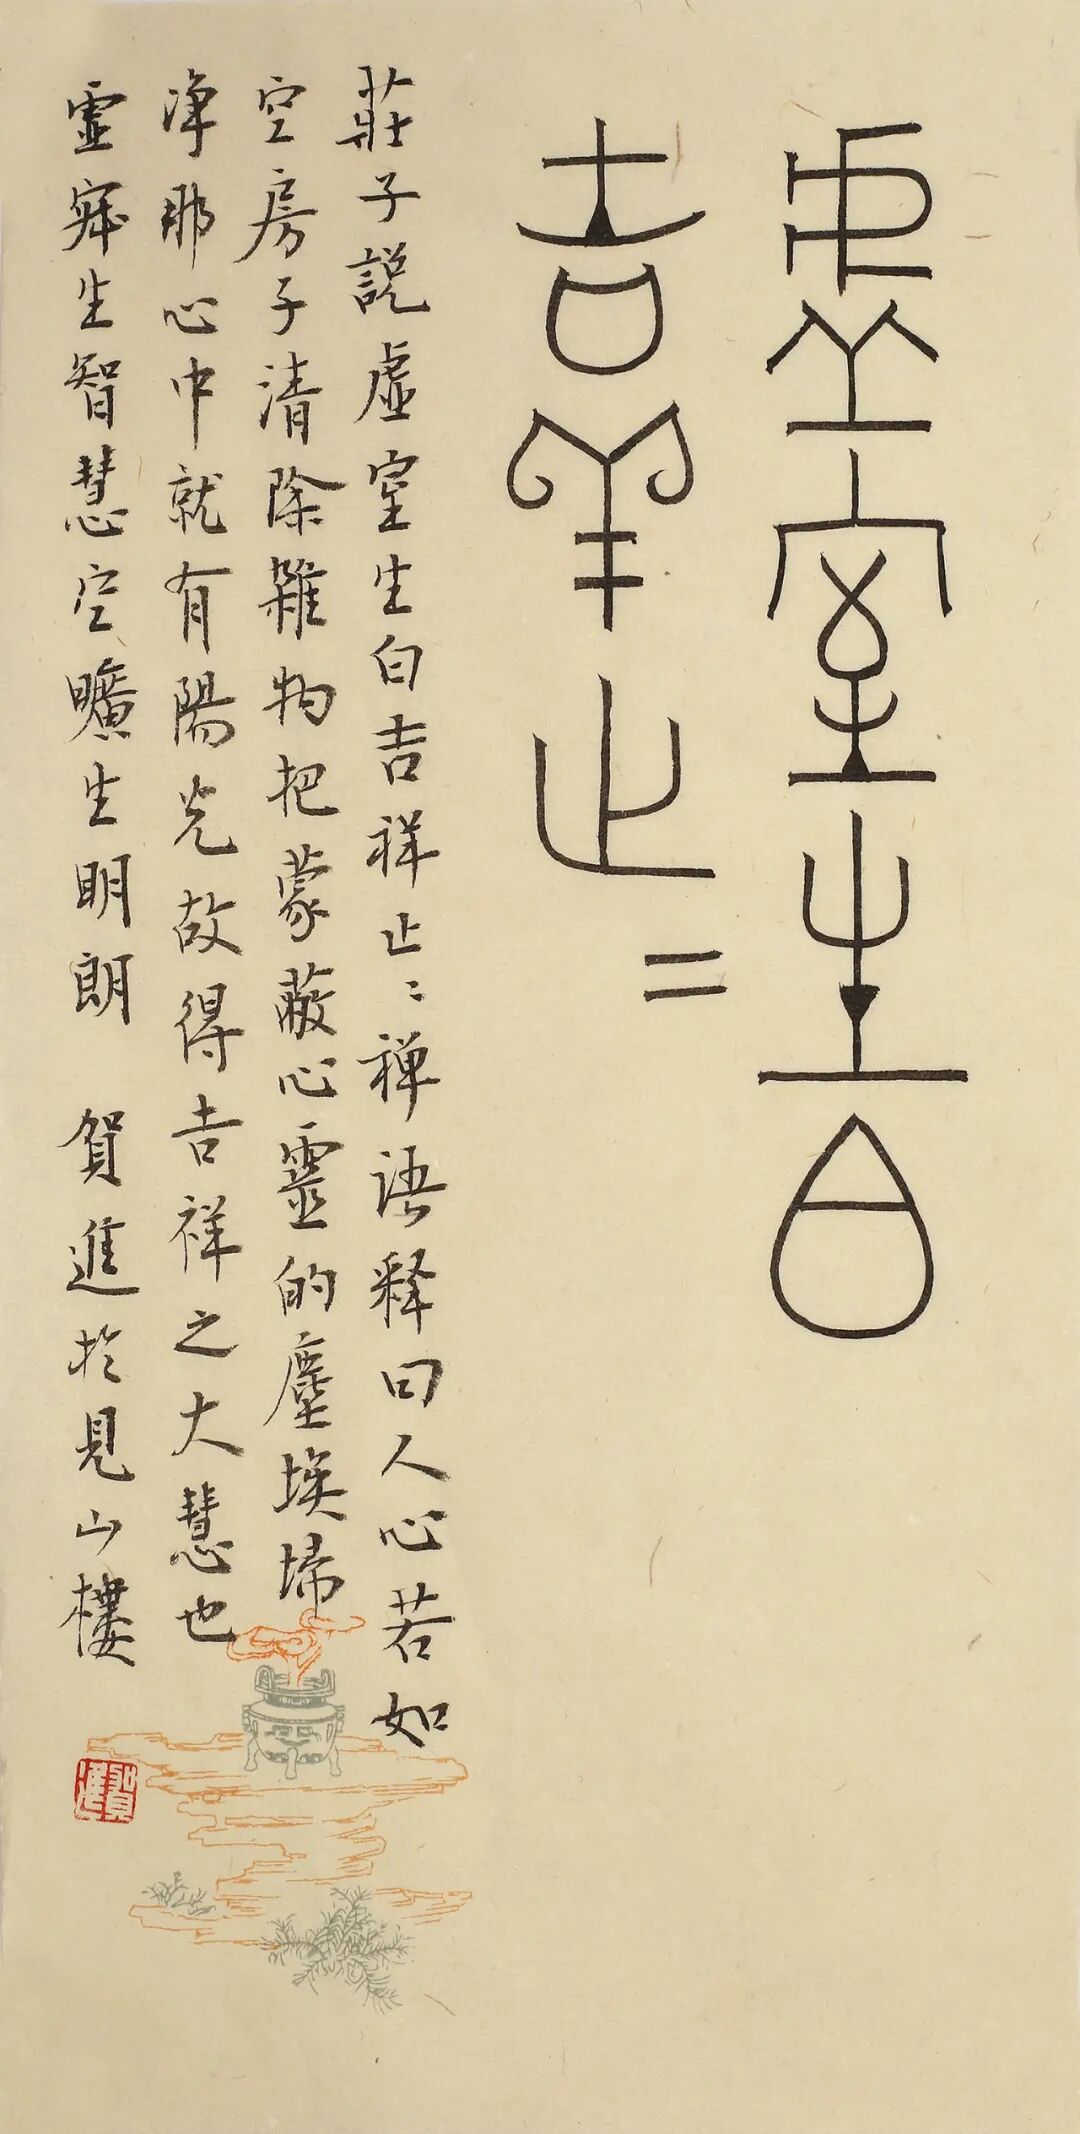 虛室生白
吉羊止二
莊子説虛室生白吉祥止〻禅语释曰人心若如
空房子清除雜物把蒙蔽心靈的塵埃埽
净那心中就有陽光故得吉祥之大慧也
生智慧空曠生明朗 賀進於見山樓
賀進